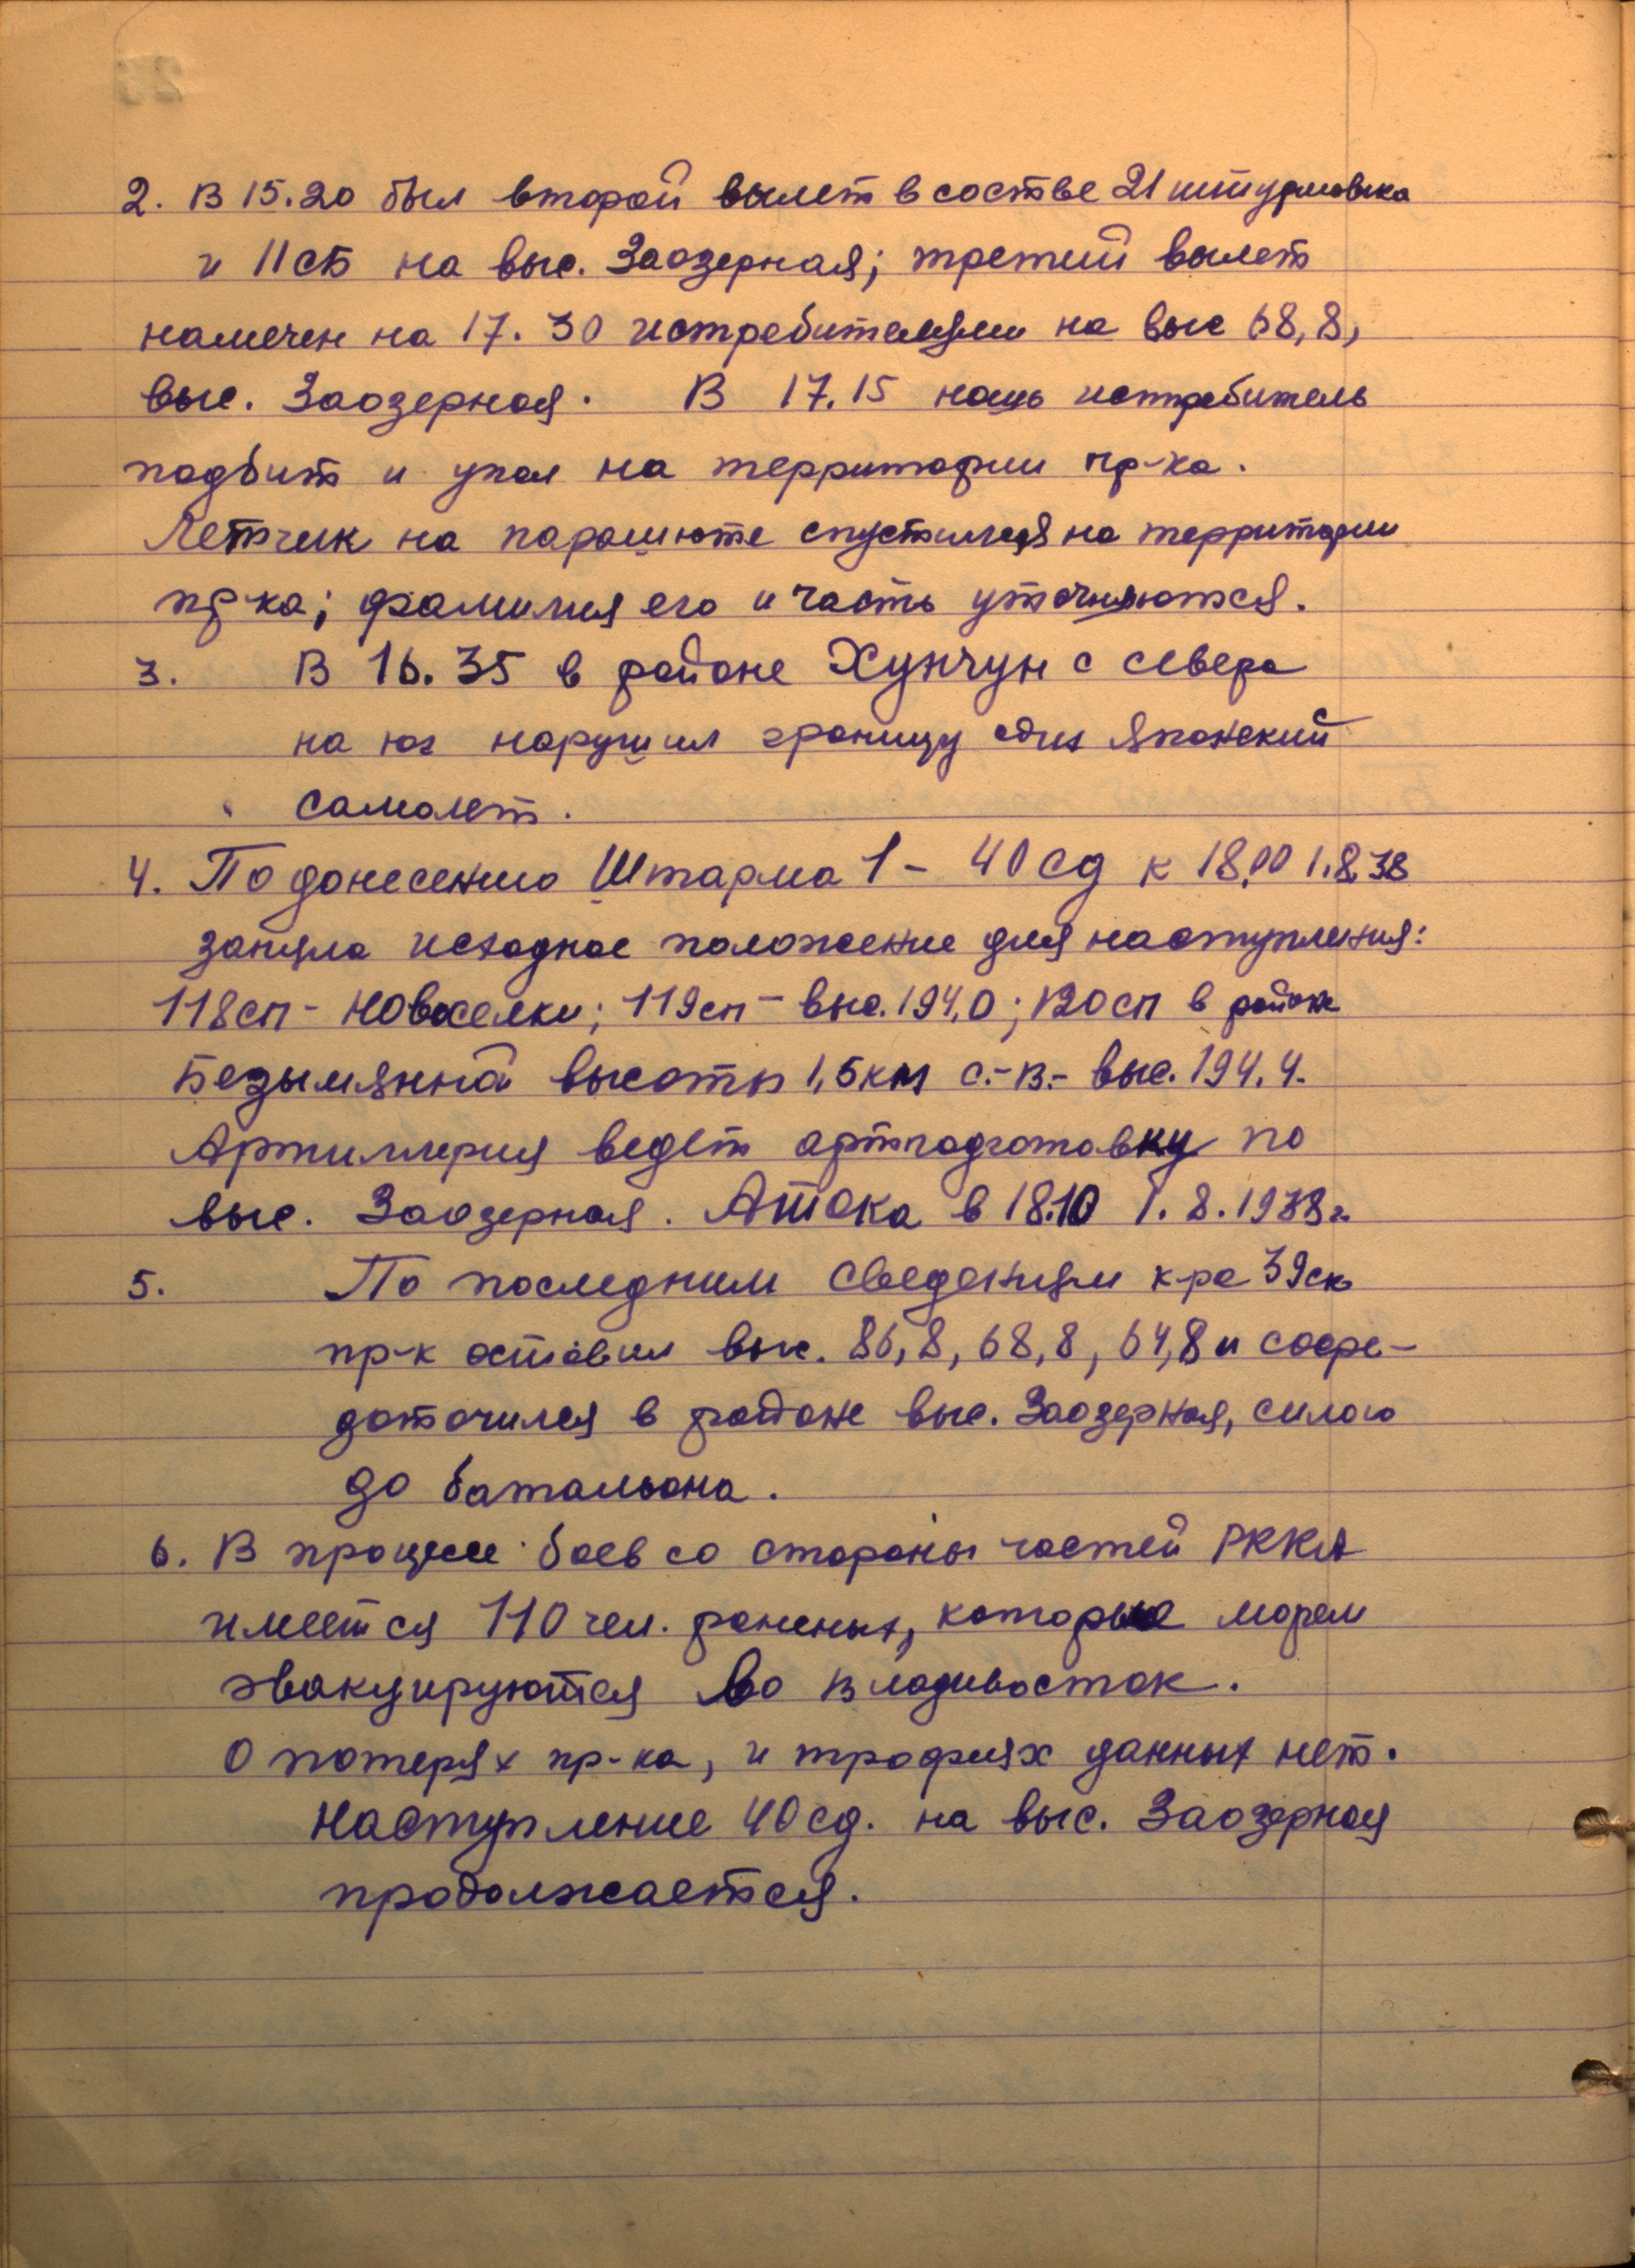 2. В 15.20 был второй вылет в состве 21 штурмовика
и 11 СБ на выс. Заозерная; третий вылет
намечен на 17.30 истребителями на выс 68,8,
выс. Заозерная. В 17.15 нашь истребитель
подбит и упал на территории пр-ка.
Летчик на парашюте спустился на территории
пр-ка; фамилия его и часть уточняются.
3. В 16.35 в районе Хунчун с севера
на юг нарушил границу один японский
самолет.
4. По донесению Штарма 1 - 40 сд к 18.00 1.8.38
заняла исходное положение для наступления:
118 сп - Новоселки; 119 сп - выс. 194,0; 120 сп в районе
Безымянной высоты 1,5 км с.-в.- выс. 194,4.
Артиллерия ведет артподготовку по
выс. Заозерная. Атака в 18.10 1.8.1938 г.
5. По последним сведениям к-ра 39 ск
пр-к оставил выс. 86,8, 68,8, 64,8 и сосре-
доточился в районе выс. Заозерная, силою
до батальона.
6. В процессе боев со стороны частей РККА
имеется 110 чел. раненых, которые морем
эвакуируются во Владивосток.
О потерях пр-ка, и трофеях данных нет.
Наступление 40 сд. на выс. Заозерная
продолжается.